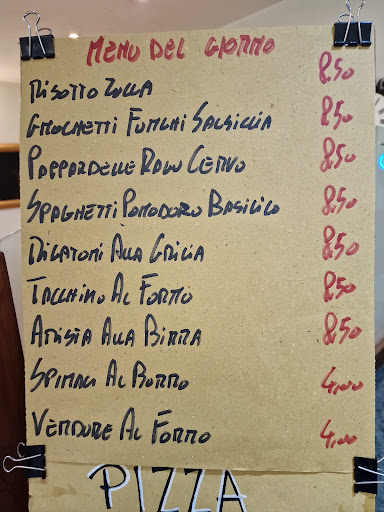 MENU DEL GIORNO
RISOTTO ZOLLA 8.50
GNOCHETTI FUNGHI SALSICCIA 8.50
PAPPARDELLE RAGU CERVO 8.50
SPAGHETTI POMODORO BASILICO 8.50
RIGATONI ALLA GRICIA 8.50
TACCHINO AL FORNO 8.50
ARISTA ALLA BIRRA 8.50
SPINACI AL BURRO 4,00
VERDURE AL FORNO 4,00
PIZZA